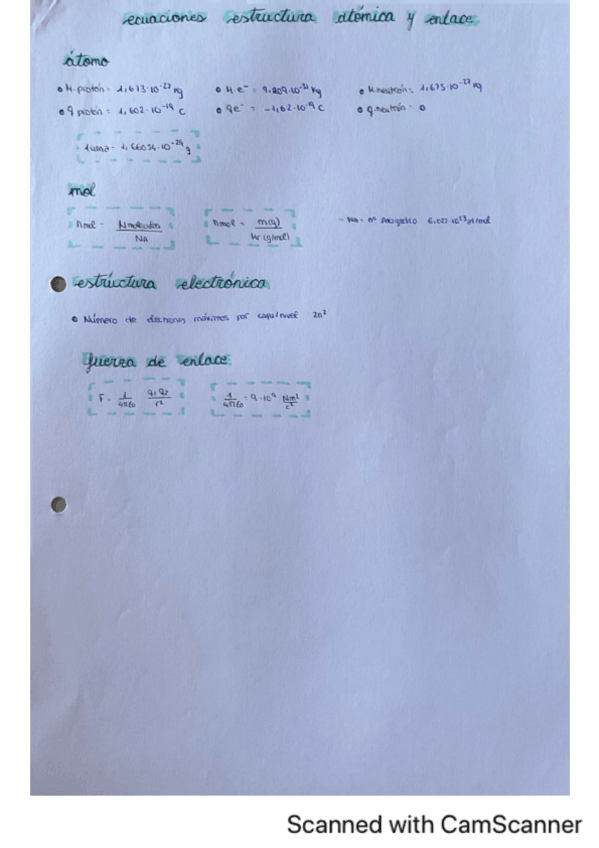 ecuaciones estructura atómica y enlace
átomo
• M.protón = 1,673·10⁻²⁷ kg • M.e⁻ = 9,109·10⁻³¹ kg • M.neutrón = 1,675·10⁻²⁷ kg
• q protón = 1,602·10⁻¹⁹ C • qe⁻ = -1,602·10⁻¹⁹ C • q.neutrón = 0
1uma = 1,66054·10⁻²⁴ g
mol
nmol = Nmoléculas / NA nmol = m(g) / Mr (g/mol) - NA = nº Avogadro 6,022·10²³ at/mol
estructura electrónica
• Número de electrones máximos por capa/nivel 2n²
fuerza de enlace
F = 1/4πε0 q1 q2/r² 1/4πε0 = 9·10⁹ Nm²/c²
Scanned with CamScanner